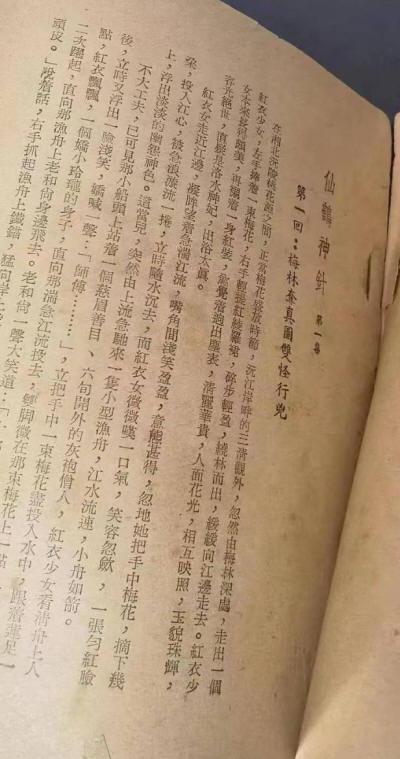 仙鶴神針 第一集
第一回：梅林奪眞圖雙怪行兇
在湘北沅陵桃花源之間，正當梅花盛放時節，沅江岸畔的三清觀外，忽然由梅林深處，走出一個
紅衣少女，左手捧着一束梅花，右手輕提紅綾羅裙，碎步輕盈，繞林而出，緩緩向江邊走去。紅衣少
女本來長得頗美，再襯着一身紅裝，愈覺着逈出塵表，清麗華貴，人面花光，相互映照，玉貌珠輝，
容光絕世，直疑是洛水神妃，出浴太眞。
紅衣女走近江邊，凝眸望着急湍江流，嘴角間淺笑盈盈，意態甚得，忽地她把手中梅花，摘下幾
朵，投入江心，被急浪漩流一捲，立時隨水沉去，而紅衣女微微嘆一口氣，笑容忽歛，一張勻紅臉
上，浮出淡淡的幽怨神色。這當兒，突然由上流急馳來一隻小型漁舟，江水流速，小舟如箭。
不大工夫，已可見那小船頭上站着一個慈眉善目、六旬開外的灰袍僧人，紅衣少女看清舟上人
後，立時又浮出一臉淺笑，嬌喊一聲：「師傅………」，立把手中一束梅花盡投入水中，跟着蓮足一
點，紅衣飄飄，一個嬌小玲瓏的身子，直向那湍急江流投去，雙脚微在那束梅花上一點
二次躍起，直向那漁舟上老和尙身邊飛去。老和尙一聲大笑道：「
頭皮。」說着話，右手抓起漁舟上鐵錨，猛向岸上